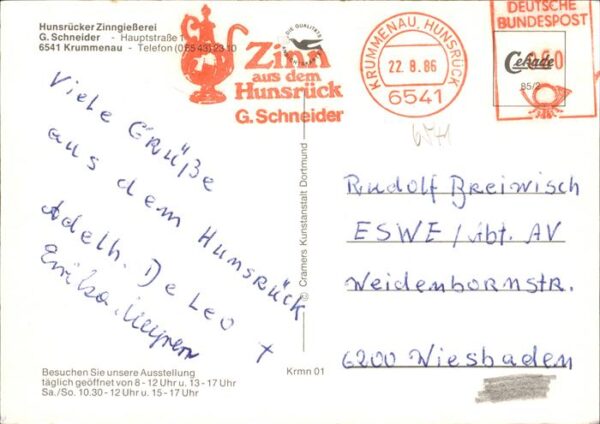 Hunsrücker Zinngießerei
G. Schneider - Hauptstraße 1
6541 Krummenau - Telefon (0 65 43) 23 10
Zinn
aus dem
Hunsrück
G. Schneider
KRUMMENAU, HUNSRÜCK
22.8.86
6541
DEUTSCHE
BUNDESPOST
060
Cekade
85/2
Viele Grüße
aus dem Hunsrück
Adelh. De Leo +
Erika
© Cramers Kunstanstalt Dortmund
Rudolf Breiwisch
ESWE/Abt. AV
Weidenbornstr.
6200 Wiesbaden
Besuchen Sie unsere Ausstellung
täglich geöffnet von 8 - 12 Uhr u. 13 - 17 Uhr
Sa./So. 10.30 - 12 Uhr u. 15 - 17 Uhr
Krmn 01